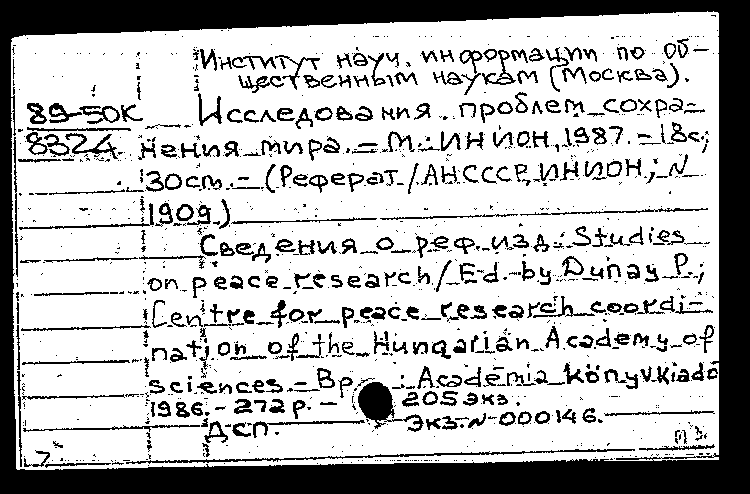 Институт науч. информации по об-
щественным наукам (Москва).
89-50К Исследования проблем сохра-
8324 нения мира. - М.: ИНИОН, 1987. - 18с;
30см. - (Реферат / АН СССР, ИНИОН; N
1909)
Сведения о реф. изд.: Studies
on peace research / Ed. by Dunay P.;
Centre for peace research coordi-
nation of the Hungarian Academy of
sciences. - Bp.: Académia könyvkiadó
1986. - 272 p. - 205 экз.
ДСП. Экз. N-000146.